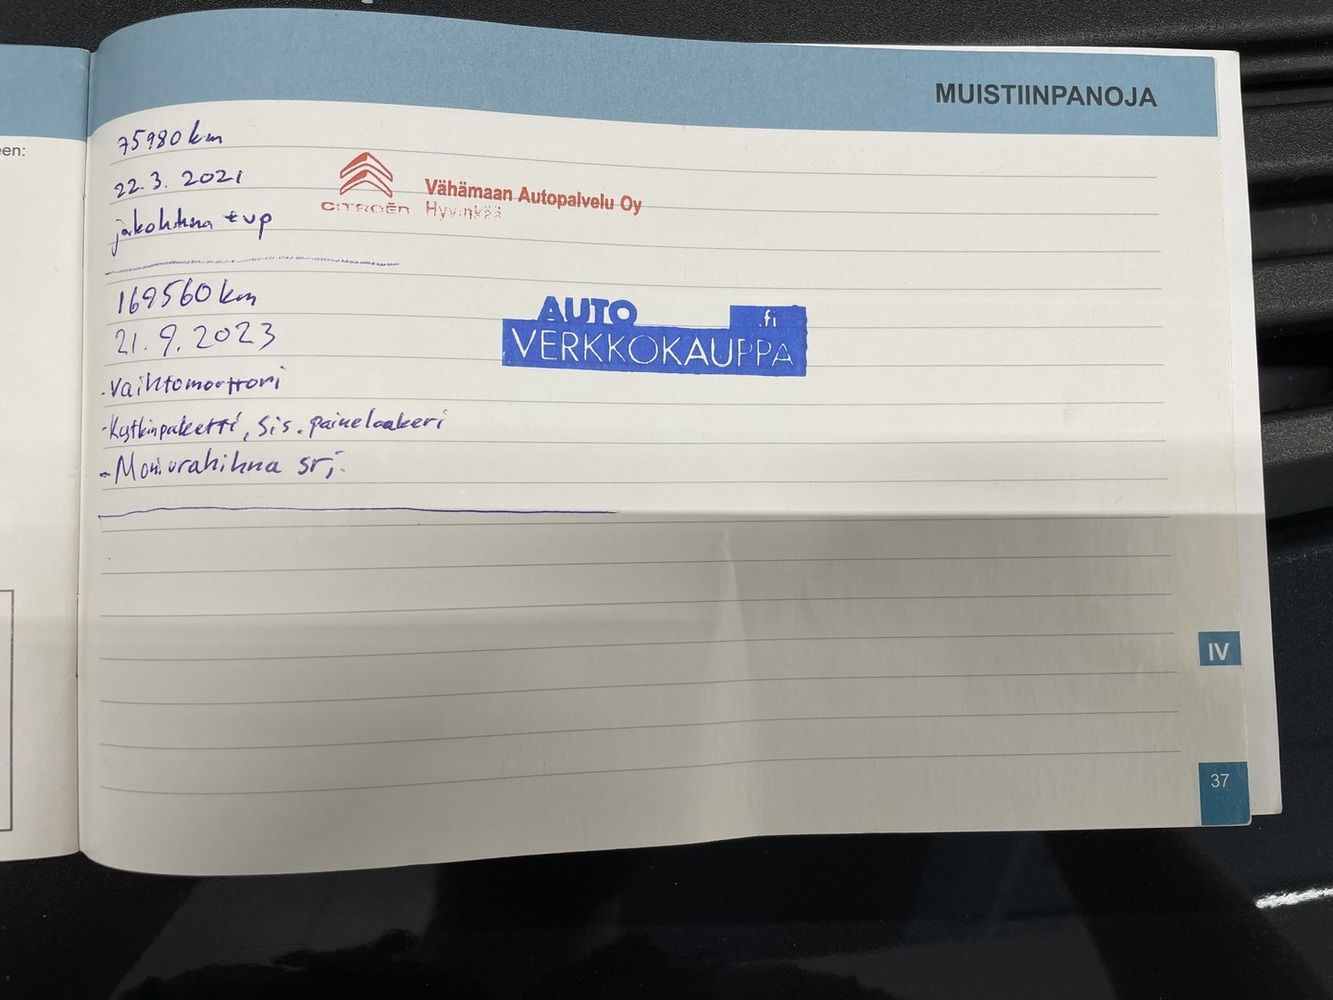 een:
MUISTIINPANOJA
75980 km
22.3. 2021
jakohihna + vp
CITROËN
Vähämaan Autopalvelu Oy
Hyvinkää
169560 km
21.9.2023
- Vaihtomoottori
- Kytkinpaketti, sis. painelaakeri
- Moniurahihna srj.
AUTO
VERKKOKAUPPA
.fi
IV
37